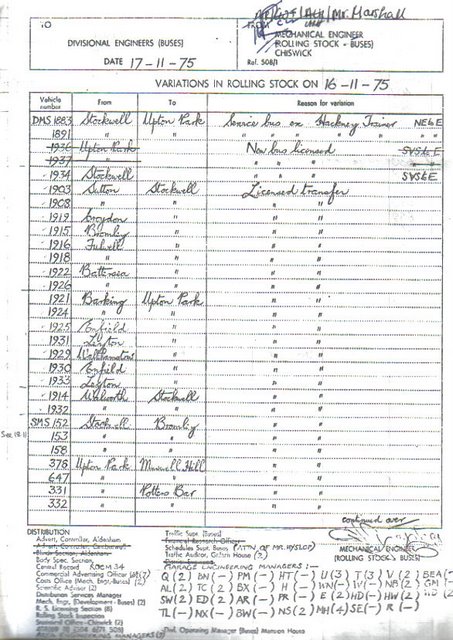 TO
Mr. Marshall
FROM
DIVISIONAL ENGINEERS (BUSES)
MECHANICAL ENGINEER
(ROLLING STOCK - BUSES)
CHISWICK
DATE 17-11-75
Ref. 508/1
VARIATIONS IN ROLLING STOCK ON 16-11-75
Vehicle number From To Reason for variation
DMS 1883 Stockwell Upton Park Service bus ex Hackney Trainer NE6E
1891 " " " " "
1936 Upton Park New bus licensed SV56E
1937 " " " "
1934 Stockwell " " " SV56E
1903 Sutton Stockwell Licensed transfer
1908 " " " "
1919 Croydon " " "
1915 Bromley " " "
1916 Fulwell " " "
1918 " " " "
1922 Battersea " " "
1926 " " " "
1921 Barking Upton Park " "
1924 " " " "
1925 Enfield " " "
1931 Leyton " " "
1929 Walthamstow " " "
1930 Enfield " " "
1933 Leyton " " "
1914 Walworth Stockwell " "
1932 " " " "
SMS 152 Stockwell Bromley " "
153 " " " "
158 " " " "
378 Upton Park Muswell Hill " "
647 " " " "
331 " Potters Bar " "
332 " " " "
continued over
DISTRIBUTION
Advert. Controller, Aldenham
Body Spec. Section
Central Record ROOM 34
Commercial Advertising Officer
Costs Office (Mech. Eng.-Buses) (2)
Scientific Adviser (2)
Distribution Services Manager
Mech. Engr. (Development - Buses) (2)
R. S. Licensing Section (8)
Rolling Stock Inspection
Traffic Supt. (Buses)
Schedules Supt. Buses (ATTN OF MR. HYSLOP)
Traffic Auditor, Griffith House (2)
MECHANICAL ENGINEER
(ROLLING STOCK BUSES)
GARAGE ENGINEERING MANAGERS :-
Q (2) BN (-) PM (-) HT (-) U (3) T (3) V (2)
AL (2) TC (2) BX (-) H (-) WN (-) NB (2)
SW (2) ED (2) AR (-) PR (-) E (2) HD (-) HW (2)
TL (-) NX (-) BW (-) NS (2) MH (4) SE (-) R (-)
Divl. Operating Manager (Buses) Manson House